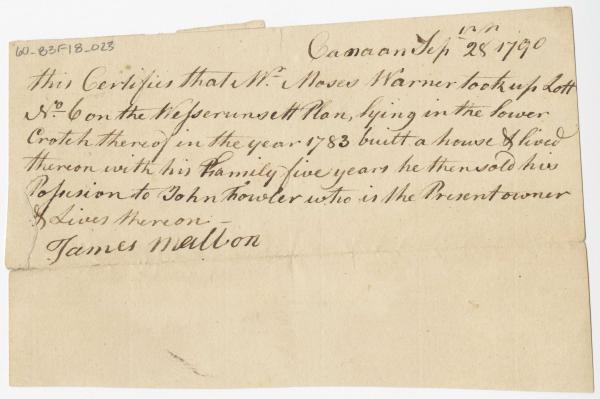 60-83F18-023
Canaan Sepr 28 1790
this Certifies that Mr. Moses Warner took up Lott
No 6 on the Wesserunsett Plan, lying in the lower
Crotch thereof in the year 1783 built a house & lived
thereon with his Family five years he then sold his
Possesion to John Fowler who is the Present owner
& Lives thereon -
James